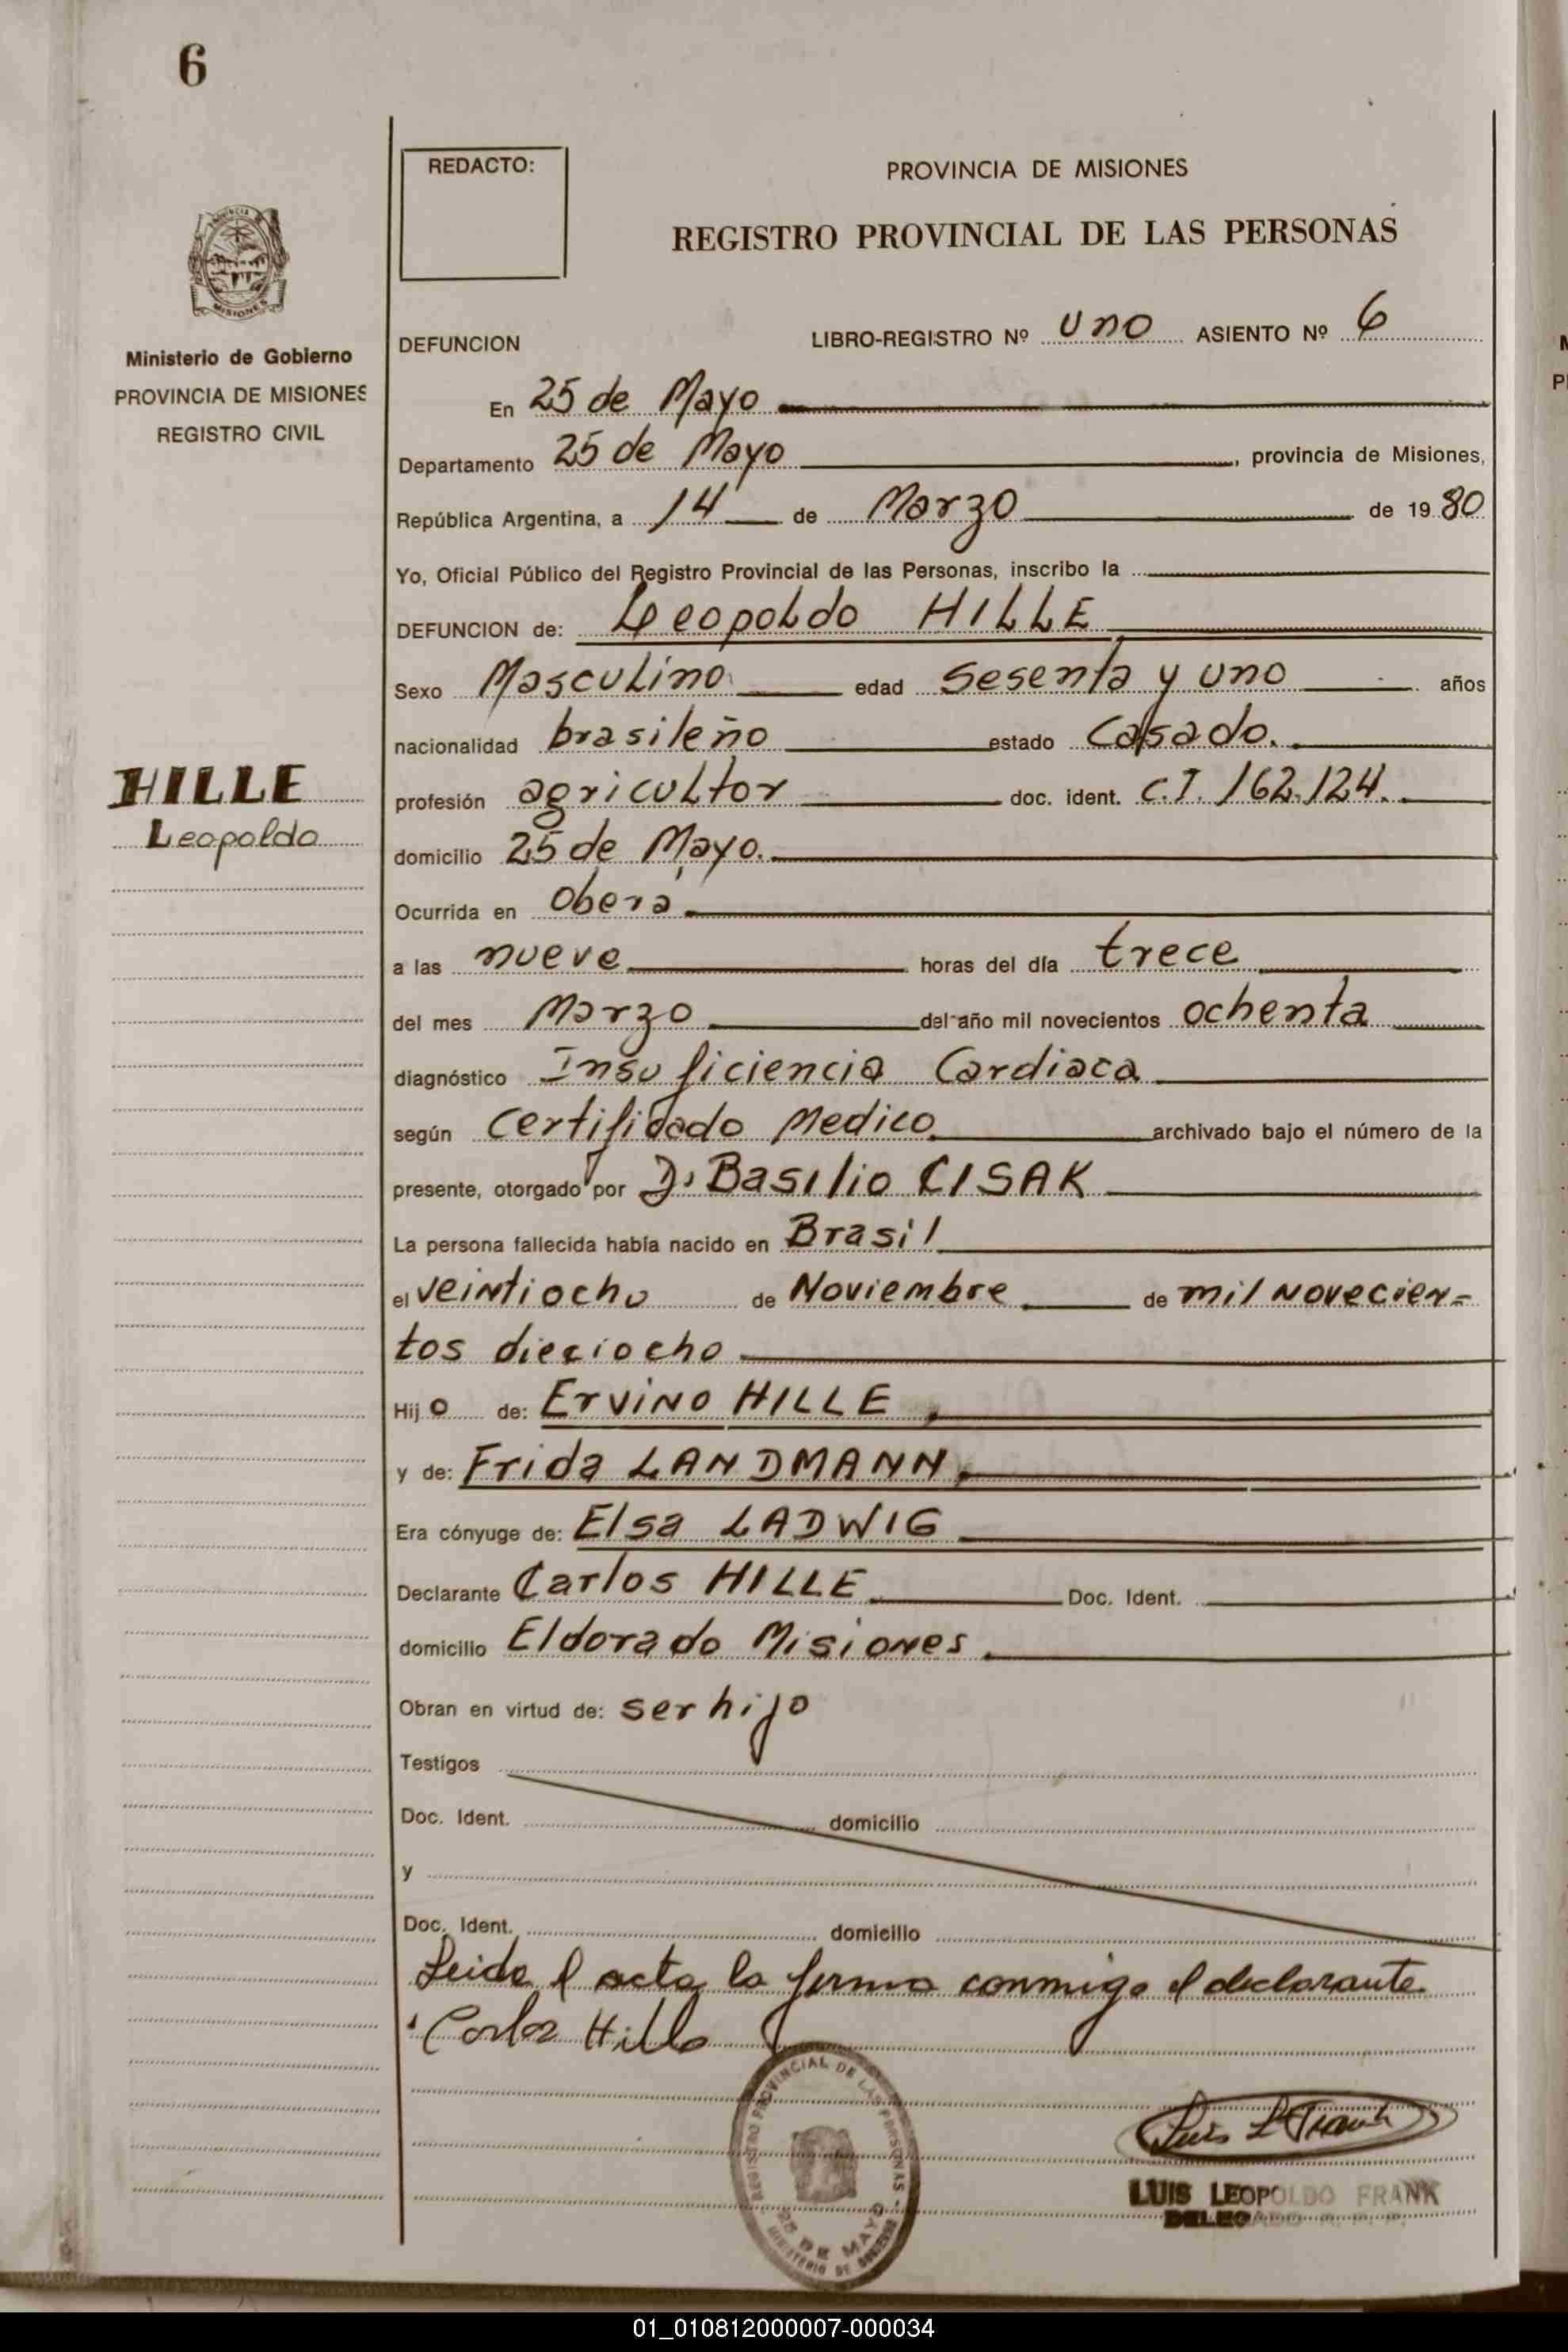 6
REDACTO:
PROVINCIA DE MISIONES
REGISTRO PROVINCIAL DE LAS PERSONAS
MISIONES
Ministerio de Gobierno
PROVINCIA DE MISIONES
REGISTRO CIVIL
DEFUNCION LIBRO-REGISTRO Nº uno ASIENTO Nº 6
En 25 de Mayo
Departamento 25 de Mayo, provincia de Misiones,
República Argentina, a 14 de Marzo de 1980
Yo, Oficial Público del Registro Provincial de las Personas, inscribo la
DEFUNCION de: Leopoldo HILLE
Sexo Masculino edad sesenta y uno años
nacionalidad brasileño estado Casado.
HILLE
Leopoldo
profesión agricultor doc. ident. C.I. 162.124.
domicilio 25 de Mayo.
Ocurrida en Oberá
a las nueve horas del día trece
del mes Marzo del año mil novecientos ochenta
diagnóstico Insuficiencia Cardiaca
según Certificado Medico archivado bajo el número de la
presente, otorgado por D. Basilio CISAK
La persona fallecida había nacido en Brasil
el veintiocho de Noviembre de mil novecien=
tos dieciocho
Hijo de: Ervino HILLE
y de: Frida LANDMANN
Era cónyuge de: Elsa LADWIG
Declarante Carlos HILLE Doc. Ident.
domicilio Eldorado Misiones
Obran en virtud de: ser hijo
Testigos
Doc. Ident. domicilio
y
Doc. Ident. domicilio
Leida el acta la firma conmigo el declarante
Carlos Hille
REGISTRO PROVINCIAL DE LAS PERSONAS
25 DE MAYO
MINISTERIO DE GOBIERNO
Luis L Frank
LUIS LEOPOLDO FRANK
DELEGADO R. P. P.
01_010812000007-000034